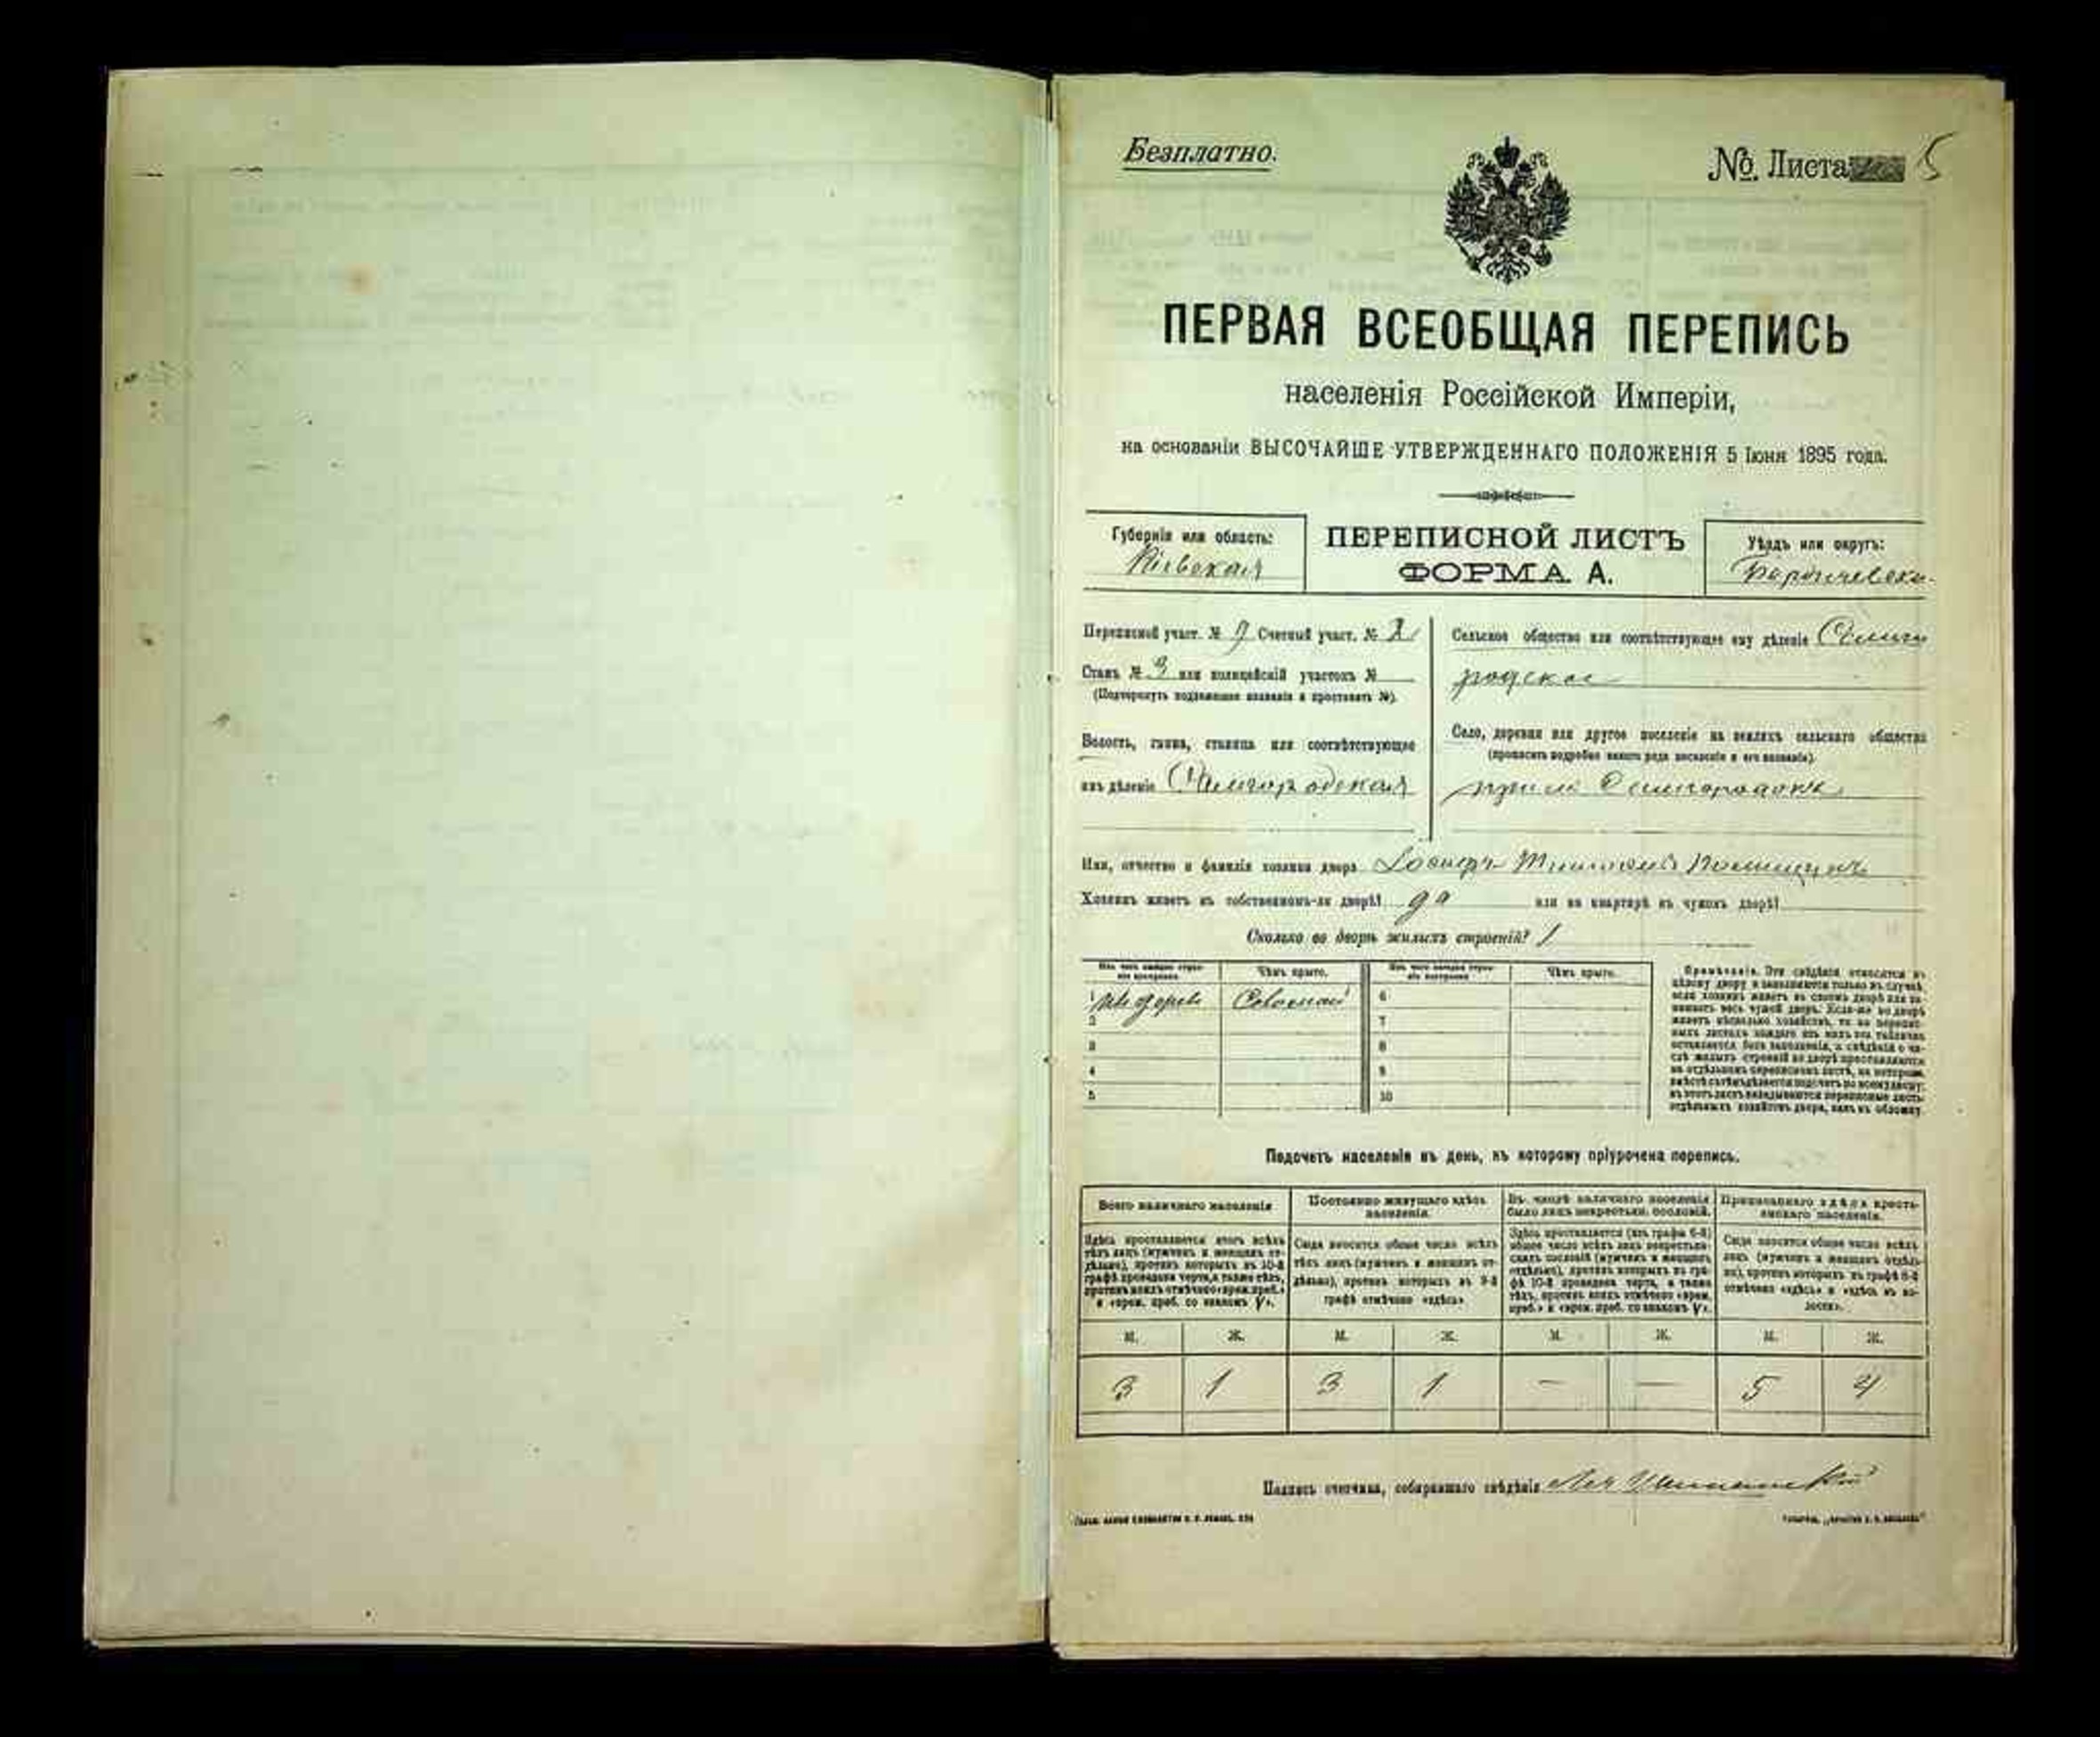 Безплатно.
№ Листа 5
ПЕРВАЯ ВСЕОБЩАЯ ПЕРЕПИСЬ
населенія Россійской Имперіи,
на основаніи ВЫСОЧАЙШЕ УТВЕРЖДЕННАГО ПОЛОЖЕНІЯ 5 Іюня 1895 года.
Губернія или область:
Кіевская
ПЕРЕПИСНОЙ ЛИСТЪ
ФОРМА А.
Уѣздъ или округъ:
Переписной участ. № 9 Счетный участ. №
Станъ № 3 или полицейскій участокъ №
(Подчеркнуть подлежащее названіе и проставить №).
Волость, гмина, станица или соотвѣтствующее
имъ дѣленіе
Сельское общество или соотвѣтствующее ему дѣленіе
Село, деревня или другое поселеніе на земляхъ сельскаго общества
(прописать подробно какого рода поселеніе и его названіе).
Имя, отчество и фамилія хозяина двора
Хозяинъ живетъ въ собственномъ-ли дворѣ? да или на квартирѣ въ чужомъ дворѣ?
Сколько во дворѣ жилыхъ строеній? 1
Изъ чего каждое строе-
ніе построено.
Чѣмъ крыто.
Изъ чего каждое строе-
ніе построено.
Чѣмъ крыто.
1 Соломой 6
2 7
3 8
4 9
5 10
Примѣчаніе. Эти свѣдѣнія относятся къ
цѣлому двору и заполняются только въ случаѣ,
если хозяинъ живетъ въ своемъ дворѣ или за-
нимаетъ весь чужой дворъ. Если-же во дворѣ
живетъ нѣсколько хозяйствъ, то на перепис-
ныхъ листахъ каждаго изъ нихъ эта табличка
оставляется безъ заполненія, а свѣдѣнія о чи-
слѣ жилыхъ строеній во дворѣ проставляются
на отдѣльномъ переписномъ листѣ, на которомъ
вмѣстѣ съ тѣмъ дѣлается подсчетъ по всему двору;
въ этотъ листъ вкладываются переписные листы
отдѣльныхъ хозяйствъ двора, какъ въ обложку.
Подсчетъ населенія въ день, къ которому пріурочена перепись.
Всего наличнаго населенія
Постоянно живущаго здѣсь
населенія.
Въ числѣ наличнаго населенія
было лицъ некрестьян. сословій.
Приписаннаго здѣсь кресть-
янскаго населенія.
Здѣсь проставляется итогъ всѣхъ
тѣхъ лицъ (мужчинъ и женщинъ от-
дѣльно), противъ которыхъ въ 10-й
графѣ проведена черта, а также тѣхъ,
противъ коихъ отмѣчено «врем. преб.»
и «врем. преб. со знакомъ V».
Сюда вносится общее число всѣхъ
тѣхъ лицъ (мужчинъ и женщинъ от-
дѣльно), противъ которыхъ въ 9-й
графѣ отмѣчено «здѣсь»
Здѣсь проставляется (изъ графы 6-й)
общее число всѣхъ лицъ некрестьян-
скихъ сословій (мужчинъ и женщинъ
отдѣльно), противъ которыхъ въ гра-
фѣ 10-й проведена черта, а также
тѣхъ, противъ коихъ отмѣчено «врем.
преб.» и «врем. преб. со знакомъ V».
Сюда вносится общее число всѣхъ
лицъ (мужчинъ и женщинъ отдѣль-
но), противъ которыхъ въ графѣ 8-й
отмѣчено «здѣсь» и «здѣсь въ во-
лости».
М. Ж. М. Ж. М. Ж. М. Ж.
3 1 3 1 — — 5 4
Подпись счетчика, собиравшаго свѣдѣнія